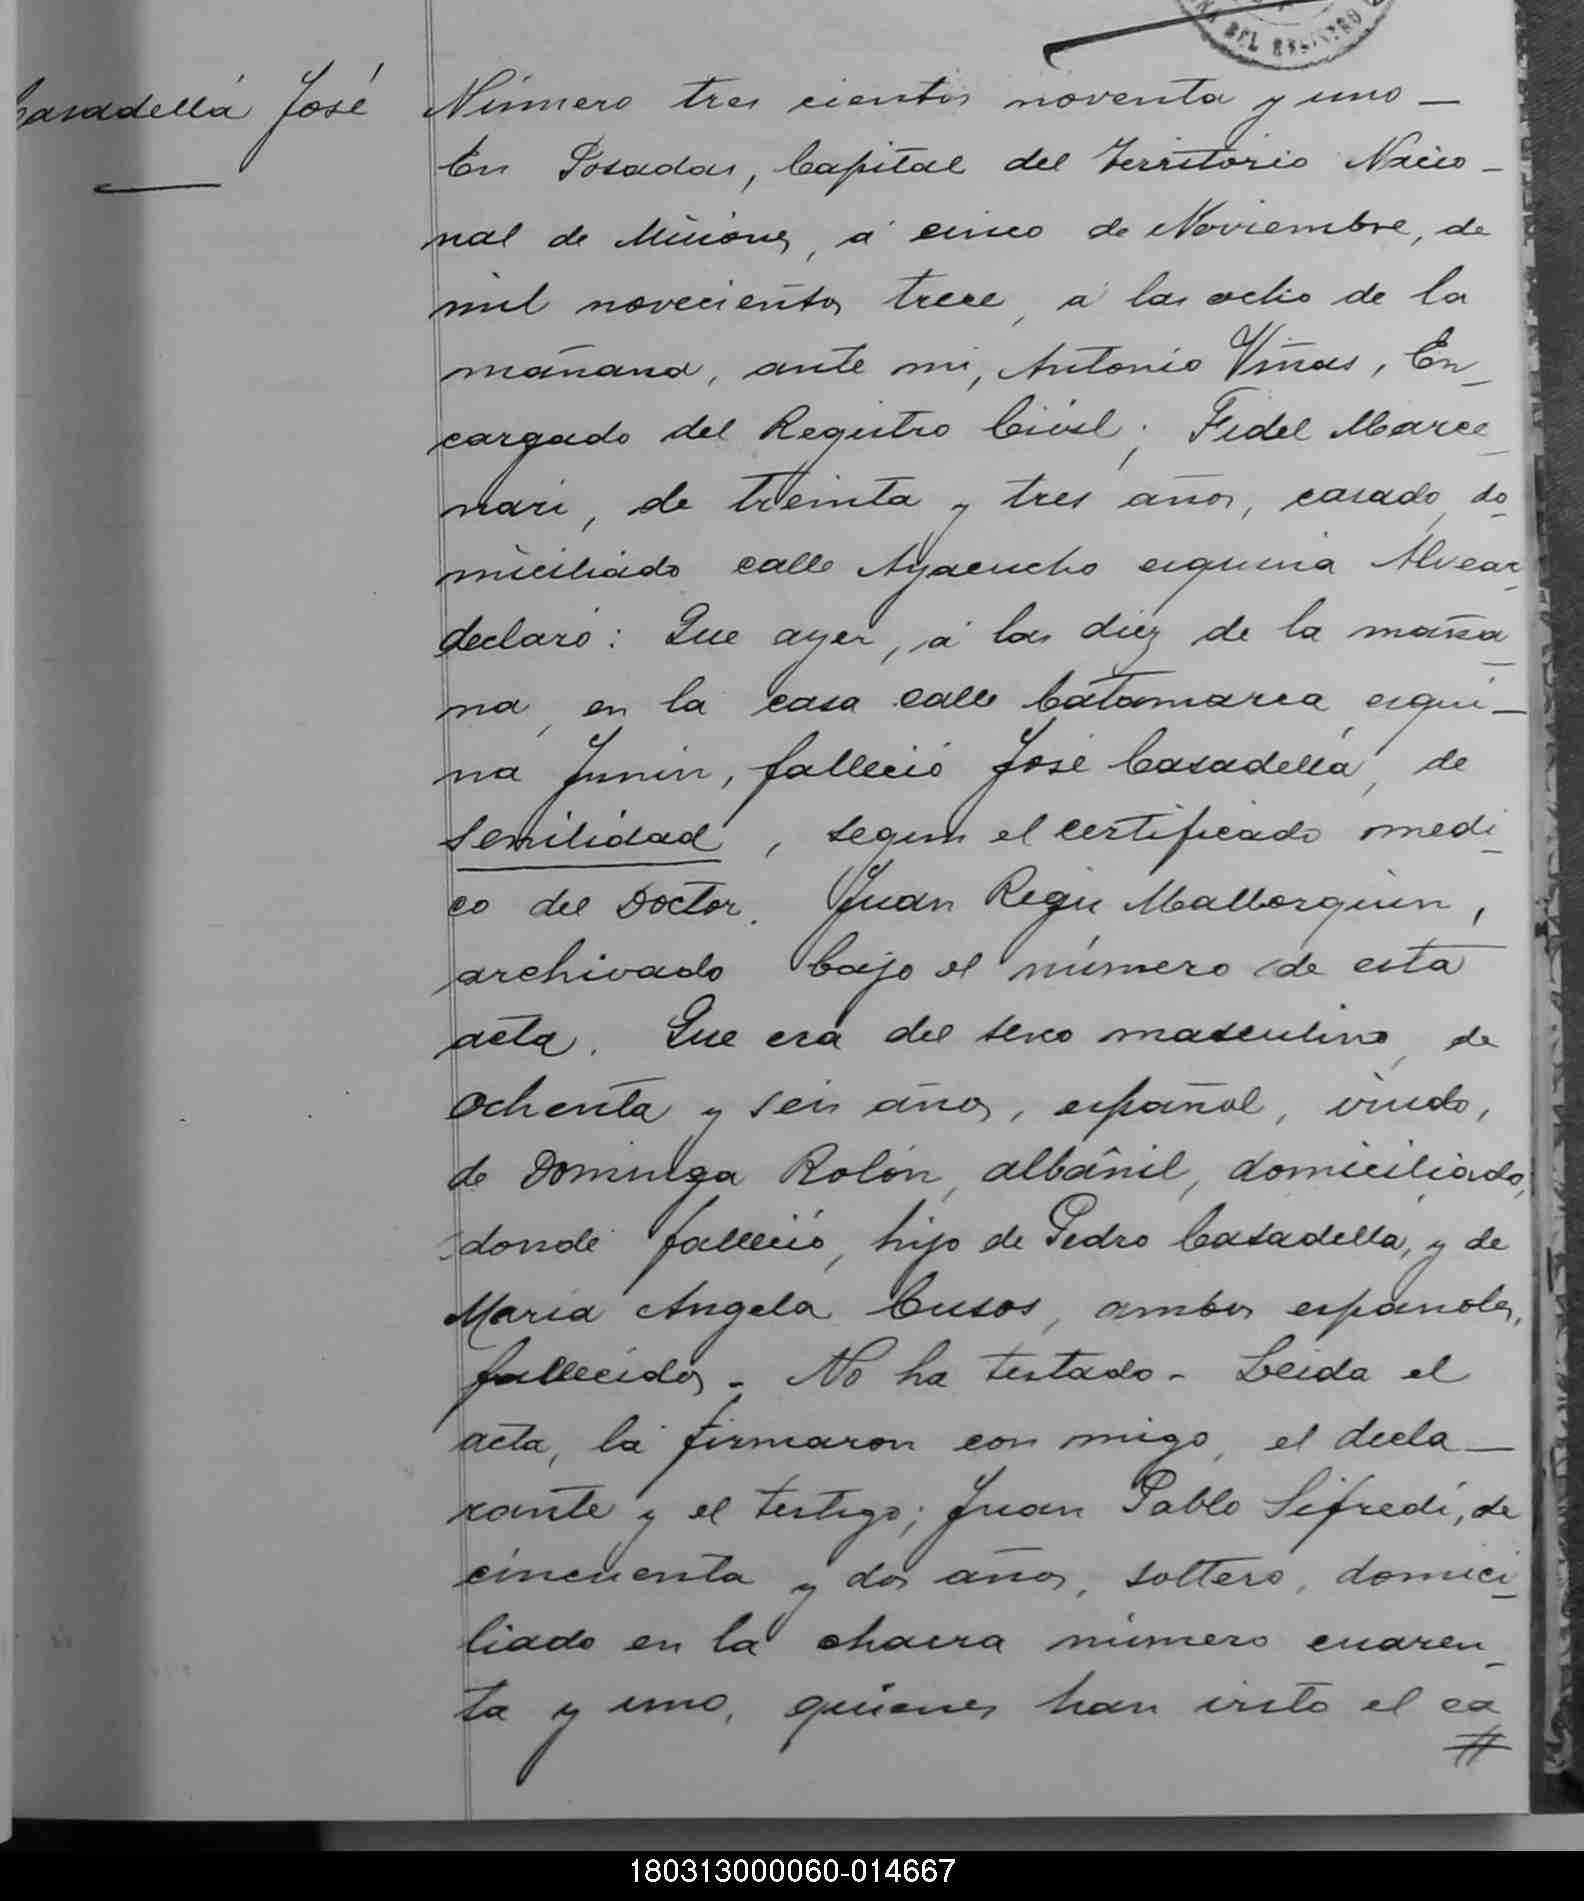 DEL REGISTRO
Casadellá José
Número tres cientos noventa y uno —
En Posadas, Capital del Territorio Nacio-
nal de Misiones, á cinco de Noviembre, de
mil novecientos trece, á las ocho de la
mañana, ante mi, Antonio Viñas, En-
cargado del Registro Civil; Fidel Marce-
nari, de treinta y tres años, casado, do-
miciliado calle Ayacucho esquina Alvear
declaró: Que ayer, á las diez de la maña-
na, en la casa calle Catamarca, esqui-
na Junin, falleció José Casadellá, de
senilidad, segun el certificado medi-
co del Doctor. Juan Regis Mallorquin,
archivado bajo el número de esta
acta. Que era del sexo masculino, de
ochenta y seis años, español, viudo,
de Dominga Rolón, albañil, domiciliado,
donde falleció, hijo de Pedro Casadellá, y de
Maria Angela Cusos, ambos españoles,
fallecidos - No ha testado - Leida el
acta, la firmaron con migo, el decla-
rante y el testigo; Juan Pablo Sifredi, de
cincuenta y dos años, soltero, domici-
liado en la chacra número cuaren-
ta y uno, quienes han visto el ca
#
180313000060-014667